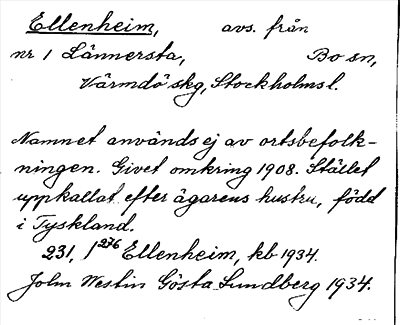 Ellenheim, avs. från
nr 1 Lännersta, Bo sn,
Värmdö skg, Stockholms l.
Namnet används ej av ortsbefolk-
ningen. Givet omkring 1908. Stället
uppkallat efter ägarens hustru, född
i Tyskland.
231, 1276 Ellenheim, kb 1934.
John Westin Gösta Lundberg 1934.